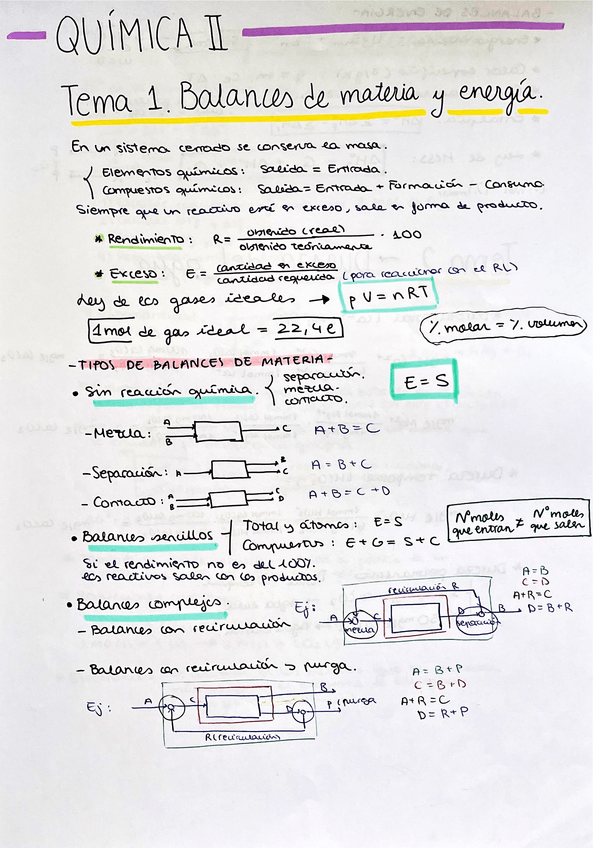 QUÍMICA II
Tema 1. Balances de materia y energía.
En un sistema cerrado se conserva la masa.
Elementos químicos: Salida = Entrada.
Compuestos químicos: Salida = Entrada + Formación - Consumo
Siempre que un reactivo esté en exceso, sale en forma de producto.
* Rendimiento: R = obtenido (real) / obtenido teóricamente · 100
* Exceso: E = cantidad en exceso / cantidad requerida (para reaccionar con el RL)
Ley de los gases ideales → pV = nRT
1 mol de gas ideal = 22,4 l
% molar = % volumen
- TIPOS DE BALANCES DE MATERIA -
• Sin reacción química. { separación. mezcla. contacto.
E = S
- Mezcla: A B C A + B = C
- Separación: A B C A = B + C
- Contacto: A B C D A + B = C + D
• Balances sencillos
Total y átomos: E = S
Compuestos: E + G = S + C
Nº moles que entran ≠ Nº moles que salen
Si el rendimiento no es del 100%.
los reactivos salen con los productos.
• Balances complejos.
- Balances con recirculación
Ej: recirculación R
A mezcla C D separación B
A = B
C = D
A + R = C
D = B + R
- Balances con recirculación y purga.
Ej: A C B D P (purga
R (recirculación)
A = B + P
C = B + D
A + R = C
D = R + P